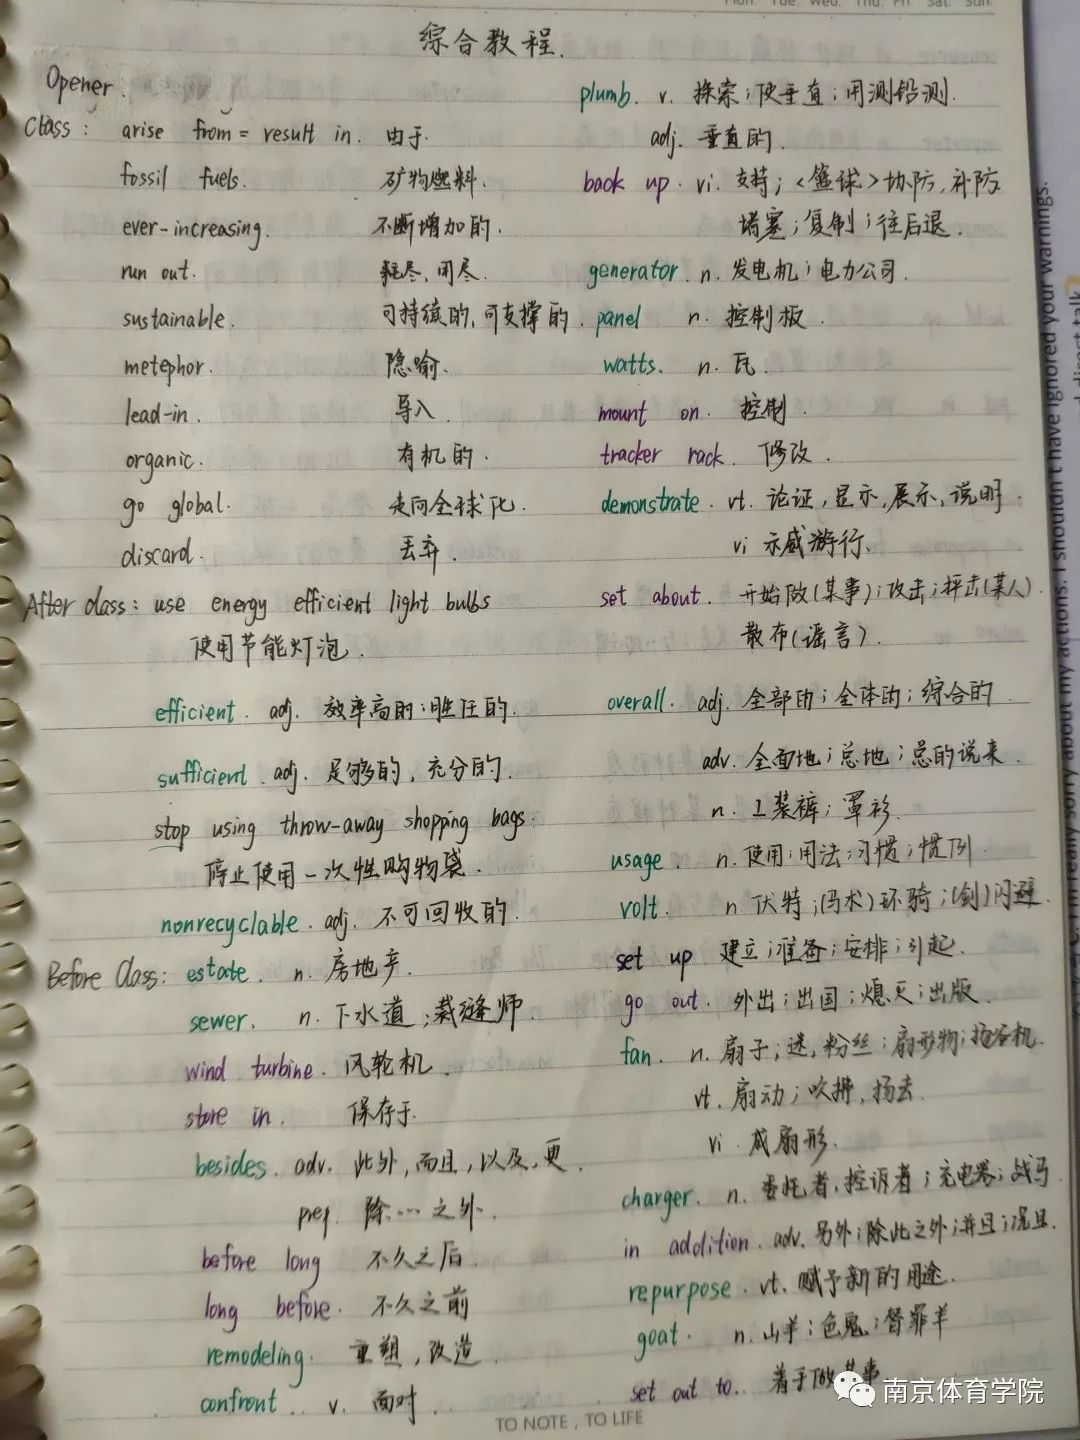 Mon. Tue. Wed. Thu. Fri. Sat. Sun.
综合教程.
Opener.
Class: arise from = result in. 由于.
fossil fuels. 矿物燃料.
ever-increasing. 不断增加的.
run out. 耗尽,用尽.
sustainable. 可持续的,可支撑的.
metephor. 隐喻.
lead-in. 导入.
organic. 有机的.
go global. 走向全球化.
discard. 丢弃.
After class: use energy efficient light bulbs
使用节能灯泡.
efficient. adj. 效率高的;胜任的.
sufficient. adj. 足够的,充分的.
stop using throw-away shopping bags.
停止使用一次性购物袋.
nonrecyclable. adj. 不可回收的.
Before Class: estate. n. 房地产.
sewer. n. 下水道;裁缝师.
wind turbine. 风轮机.
store in. 保存于.
besides. adv. 此外,而且,以及,更.
prep. 除…之外.
before long 不久之后.
long before. 不久之前
remodeling. 重塑,改造.
confront. v. 面对.
plumb. v. 探索;使垂直;用测铅测.
adj. 垂直的.
back up. vi. 支持;<篮球>协防,补防
堵塞;复制;往后退.
generator. n. 发电机;电力公司.
panel n. 控制板.
watts. n. 瓦.
mount on. 控制.
tracker rack. 修改.
demonstrate. vt. 论证,显示,展示,说明.
vi 示威游行.
set about. 开始做(某事);攻击;抨击(某人).
散布(谣言).
overall. adj. 全部的;全体的;综合的.
adv. 全面地;总地;总的说来.
n. 工装裤;罩衫.
usage. n. 使用;用法;习惯;惯例.
volt. n. 伏特;(马术)环骑;(剑)闪避.
set up 建立;准备;安排;引起.
go out. 外出;出国;熄灭;出版.
fan. n. 扇子;迷,粉丝;扇形物;扬谷机.
vt. 扇动;吹拂,扬去.
vi. 成扇形.
charger. n. 委托者,控诉者;充电器;战马.
in addition. adv. 另外;除此之外;并且;况且.
repurpose. vt. 赋予新的用途.
goat. n. 山羊;色鬼;替罪羊
set out to. 着手做某事
TO NOTE, TO LIFE
南京体育学院
I'm really sorry about my actions. I shouldn't have ignored your warnings.